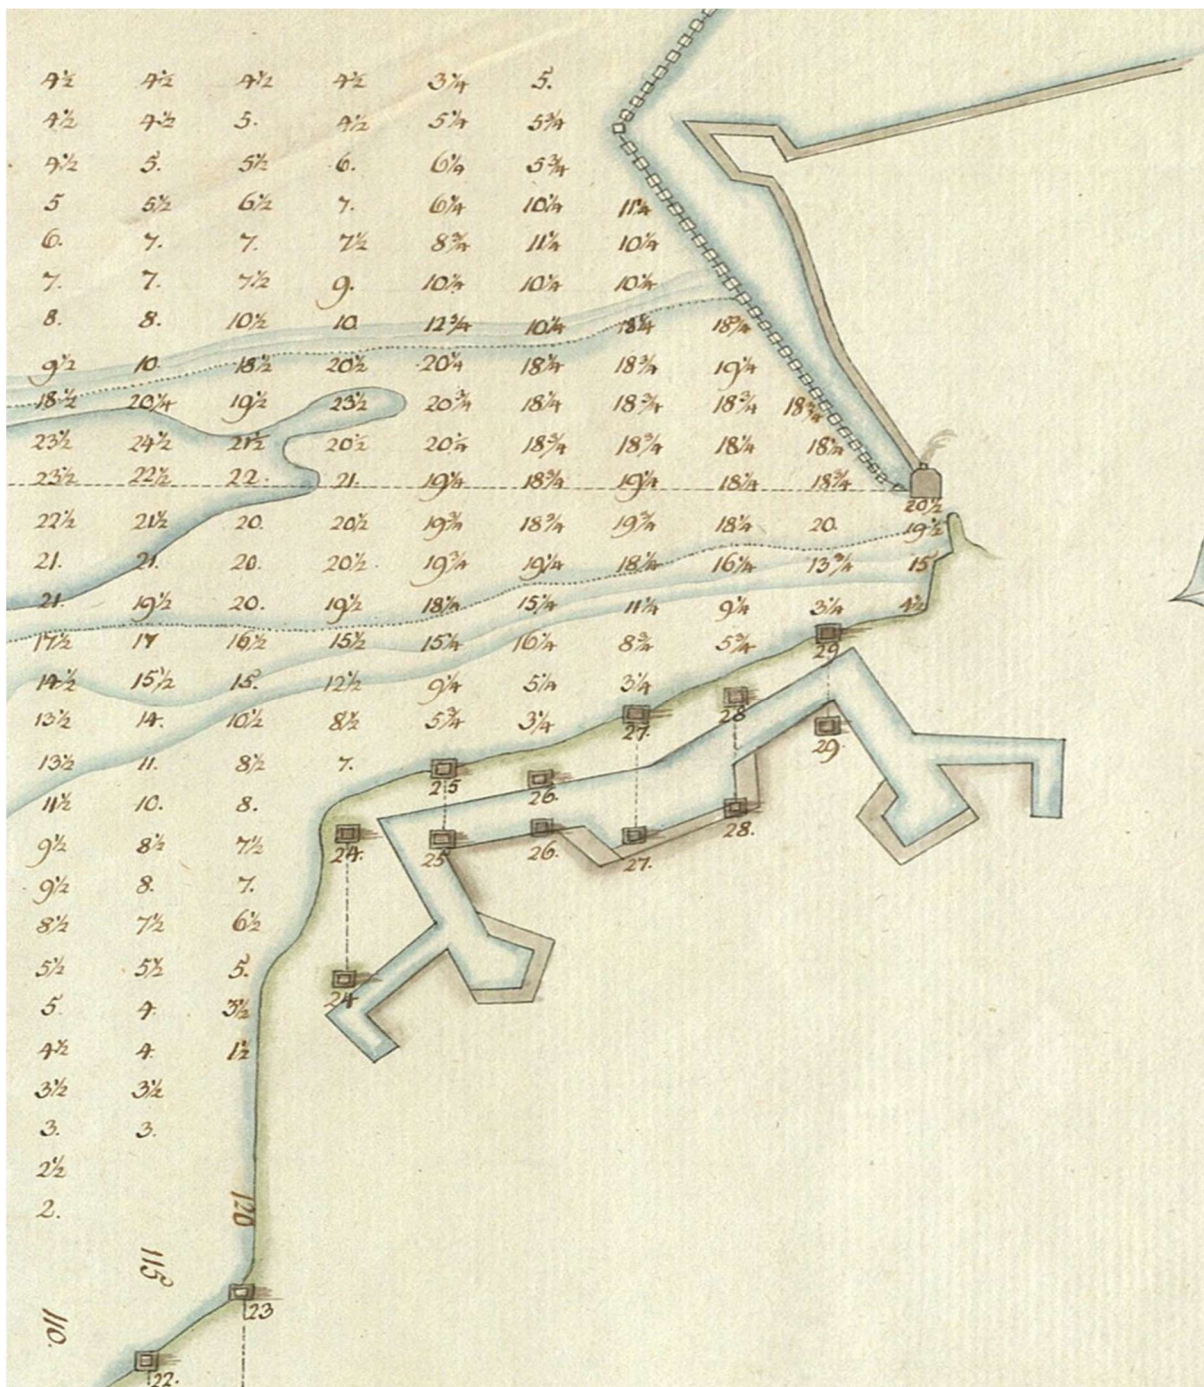 4½ 4½ 4½ 4½ 3¼ 5.
4½ 4½ 5. 4½ 5¼ 5¾
4½ 5. 5½ 6. 6¼ 5¾
5 5½ 6½ 7. 6¼ 10¼ 11¼
6. 7. 7. 7½ 8¾ 11¼ 10¼
7. 7. 7½ 9. 10¼ 10¼ 10¼
8. 8. 10½ 10 12¾ 10¼ 18¼ 18¾
9½ 10. 18½ 20½ 20¼ 18¼ 18¾ 19¼
18½ 20¼ 19½ 23½ 20¾ 18¼ 18¾ 18¾ 18¾
23½ 24½ 21½ 20½ 20¼ 18¾ 18¾ 18¼ 18¼
23½ 22½ 22. 21. 19¼ 18¾ 19¼ 18¼ 18¾ 20½
22½ 21½ 20. 20½ 19¾ 18¾ 19¾ 18¼ 20. 19½
21. 21. 20. 20½. 19¾ 19¼ 18¼ 16¼ 13¾ 15
21. 19½ 20. 19½ 18¼ 15¼ 11¼ 9¼ 3¼ 4½
17½ 17 16½ 15½ 15¼ 16¼ 8¾ 5¾ 29
14½ 15½ 15. 12½ 9¼ 5¼ 3¼
13½ 14. 10½ 8½ 5¾ 3¼ 27. 28 29.
13½ 11. 8½ 7. 25 26.
11½ 10. 8.
9½ 8½ 7½ 24. 25 26. 27. 28.
9½ 8. 7.
8½ 7½ 6½
5½ 5½ 5.
5. 4. 3½ 24
4½ 4. 1½
3½ 3½
3. 3.
2½
2. 120
115
110. 23
22.